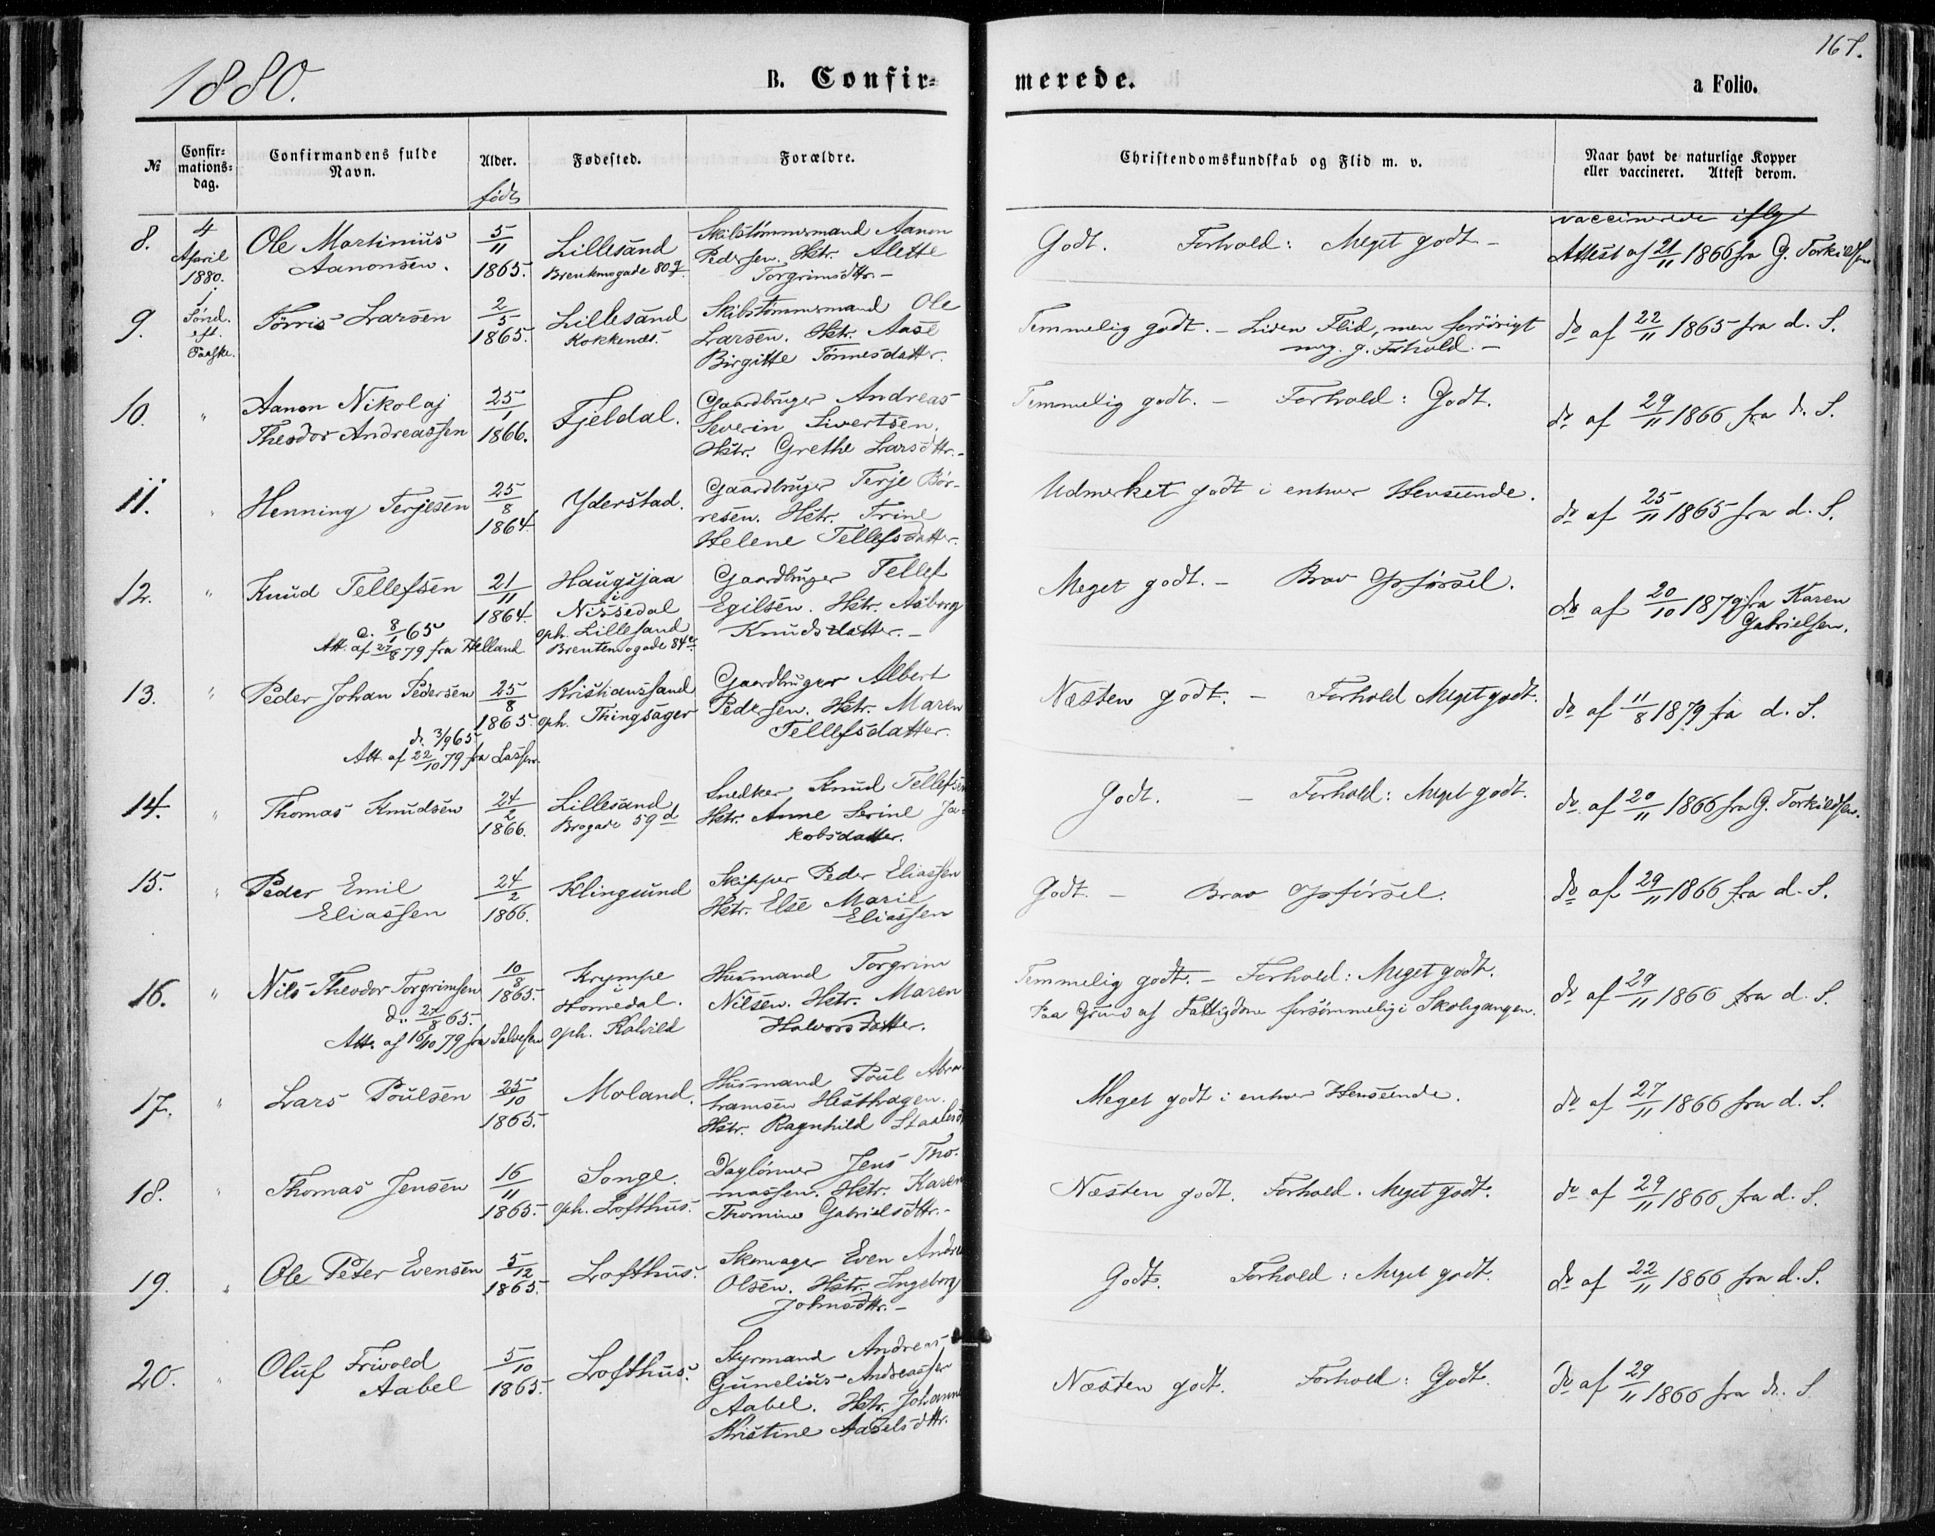 1880.
B. Confir-
merede.
a Folio.
167.
№
Confir-
mations-
dag.
Confirmandens fulde
Navn.
Alder.
født
Fødested.
Forældre.
Christendomskundskab og Flid m. v.
Naar havt de naturlige Kopper
eller vaccineret. Attest derom.
8.
4
April
1880.
Ole Martinius
Aanonsen.
5/11
1865.
Lillesand
Skibstømmermand Aanon
Pedersen. Hstr. Alette
Torgrimsdttr. -
Godt. Forhold: Meget godt -
vaccinerede iflg
Attest af 21/11 1866 fra G. Torkildsen
9.
1.
Sønd.
eft.
Paaske.
Tørris Larsen
2/5
1865.
Lillesand
Kokkenes.
Skibstømmermand Ole
Larsen. Hstr. Aase
Birgitte Tønnesdatter.
Temmelig godt. - Liden Flid, men forøvrigt
meg. g. Forhold. -
do af 22/11 1865 fra d. S.
10.
"
Aanon Nikolaj
Theodor Andreassen
25/1
1866.
Fjeldal.
Gaardbruger Andreas
Severin Sivertsen.
Hstr. Grethe Larsdttr. -
Temmelig godt. - Forhold: Godt.
do af 29/11 1866 fra d. S.
11.
"
Henning Terjesen
25/8
1864.
Yderstad.
Gaardbruger Terje Bør-
resen. Hstr. Trine
Helene Tellefsdatter.
Udmerket godt i enhver Henseende.
do af 25/11 1865 fra d. S.
12.
"
Knud Tellefsen
d. 8/1 65
Att. af 27/8 79 fra Helland
21/11
1864.
Haugsjaa
i
Nissedal
oph. Lillesand
Brentemogade 84e
Gaardbruger Tellef
Egilsen. Hstr. Aasborg
Knudsdatter. -
Meget godt. - Brav Opførsel.
do af 20/10 1879 fra Karen
Gabrielsen.
13.
"
Peder Johan Pedersen
d. 3/9 65
Att. af 22/10 79 fra Lassen.
25/8
1865.
Kristianssand
oph. Thingsager
Gaardbruger Albert
Pedersen. Hstr. Maren
Tellefsdatter.
Næsten godt. - Forhold Meget godt.
do af 11/8 1879 fra d. S.
14.
"
Thomas Knudsen
24/2
1866.
Lillesand
Brogade 59d
Snedker Knud Tellefsen
Hstr. Anne Serine Ja-
kobsdatter.
Godt. - Forhold: Meget godt.
do af 20/11 1866 fra G. Torkildsen.
15.
"
Peder Emil
Eliassen
24/2
1866.
Klingsund
Skipper Peder Eliassen
Hstr. Else Marie
Eliassen
Godt. - Brav Opførsel.
do af 29/11 1866 fra d. S.
16.
"
Nils Theodor Torgrimsen
d. 27/8 65.
Att. af 16/10 79 fra Salvesen
10/8
1865.
Krympe
i
Homedal.
oph. Kalvild
Husmand Torgrim
Nilsen. Hstr. Maren
Halvorsdatter.
Temmelig godt. - Forhold: Meget godt.
Paa Grund af Fattigdom forsømmelig i Skolegangen.
do af 29/11 1866 fra d. S.
17.
"
Lars Poulsen
25/10
1865.
Moland.
Husmand Poul Abra-
hamsen Hesthagen.
Hstr. Ragnhild Staalesd
Meget godt i enhver Henseende.
do af 27/11 1866 fra d. S.
18.
"
Thomas Jensen
16/11
1865.
Songe.
oph. Lofthus.
Daglønner Jens Tho-
massen. Hstr. Karen
Thomine Gabrielsdttr. -
Næsten godt. Forhold. Meget godt.
do af 29/11 1866 fra d. S.
19.
"
Ole Peter Evensen
5/12
1865.
Lofthus.
Skomager Even Andre
Olsen. Hstr. Ingeborg
Johnsdttr. -
Godt. Forhold: Meget godt.
do af 22/11 1866 fra d. S.
20.
"
Oluf Frivold
Aabel
5/10
1865.
Lofthus.
Styrmand Andreas
Gunelius Andreassen
Aabel. Hstr. Johanne
Kristine Aabelsdttr.
Næsten godt. Forhold: Godt.
do af 29/11 1866 fra d. S.